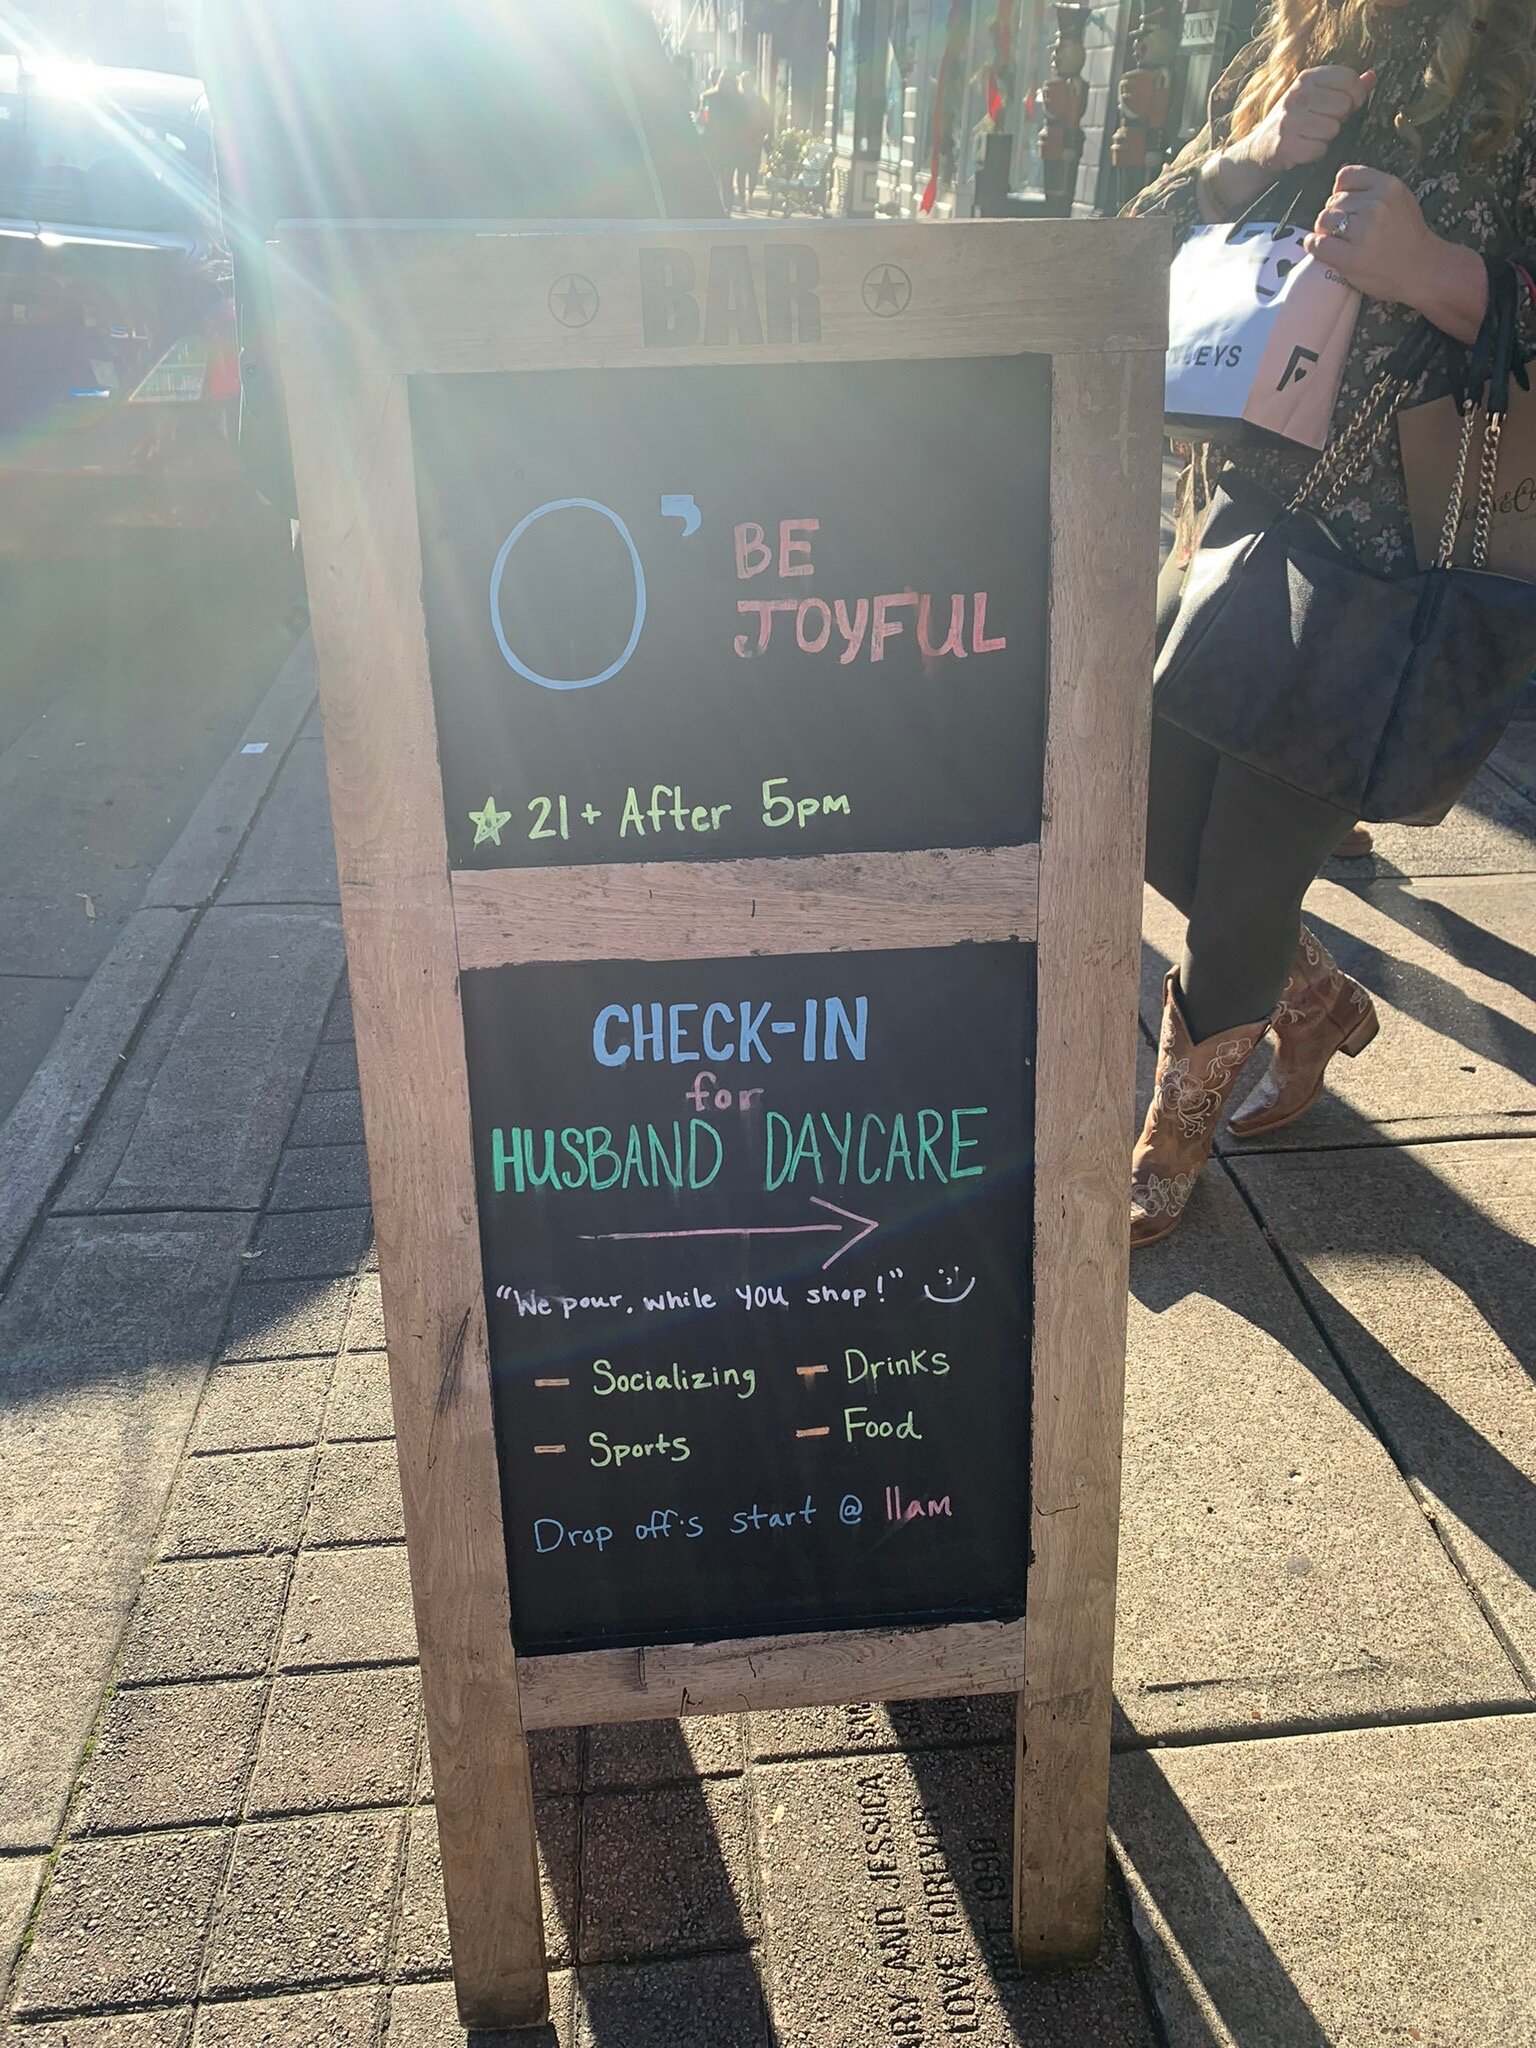 BAR
O' BE
JOYFUL
21+ After 5pm
CHECK-IN
for
HUSBAND DAYCARE
"We pour, while you shop!"
- Socializing - Drinks
- Sports - Food
Drop off's start @ 11am
EYS
F
AND JESSICA
LOVE FOREVER
1990